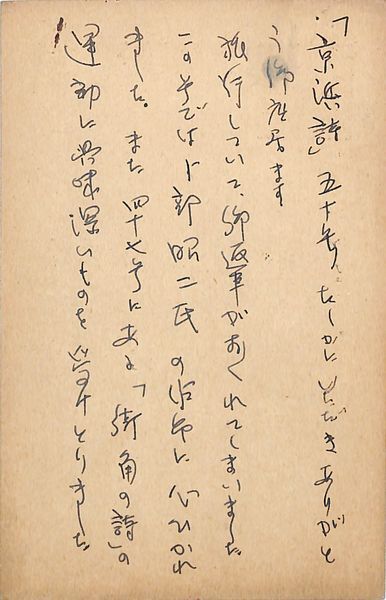 「京浜詩」五十号 たしかにいただきありがと
う御座居ます
旅行していて、御返事がおくれてしまいました
この号では卜部昭二氏の作品に心ひかれ
ました。また四十七号にある「街角の詩」の
運動に興味深いものを受けとりました